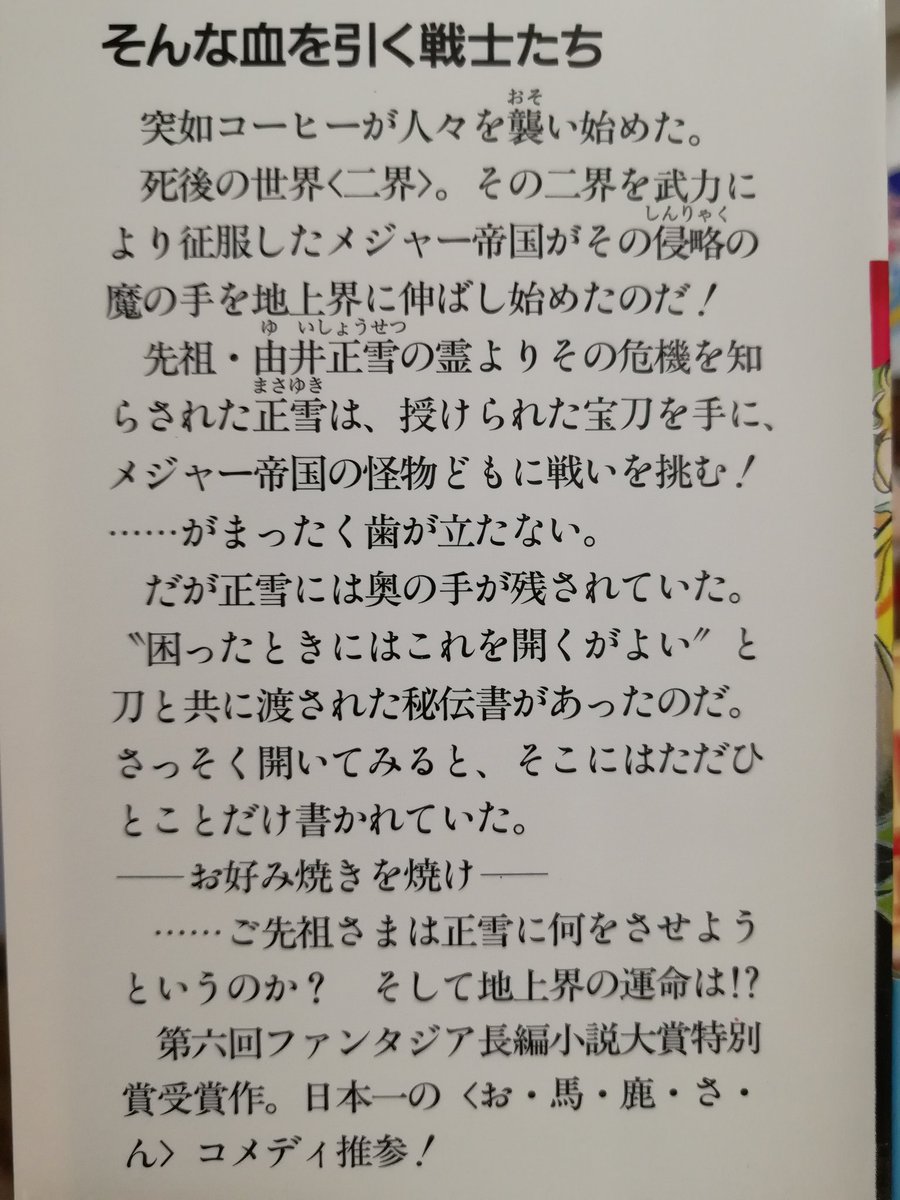 そんな血を引く戦士たち
突如コーヒーが人々を襲い始めた。
死後の世界〈二界〉。その二界を武力に
より征服したメジャー帝国がその侵略の
魔の手を地上界に伸ばし始めたのだ！
先祖・由井正雪の霊よりその危機を知
らされた正雪は、授けられた宝刀を手に、
メジャー帝国の怪物どもに戦いを挑む！
……がまったく歯が立たない。
だが正雪には奥の手が残されていた。
〝困ったときにはこれを開くがよい〟と
刀と共に渡された秘伝書があったのだ。
さっそく開いてみると、そこにはただひ
とことだけ書かれていた。
──お好み焼きを焼け──
……ご先祖さまは正雪に何をさせよう
というのか？　そして地上界の運命は!?
第六回ファンタジア長編小説大賞特別
賞受賞作。日本一の〈お・馬・鹿・さ・
ん〉コメディ推参！